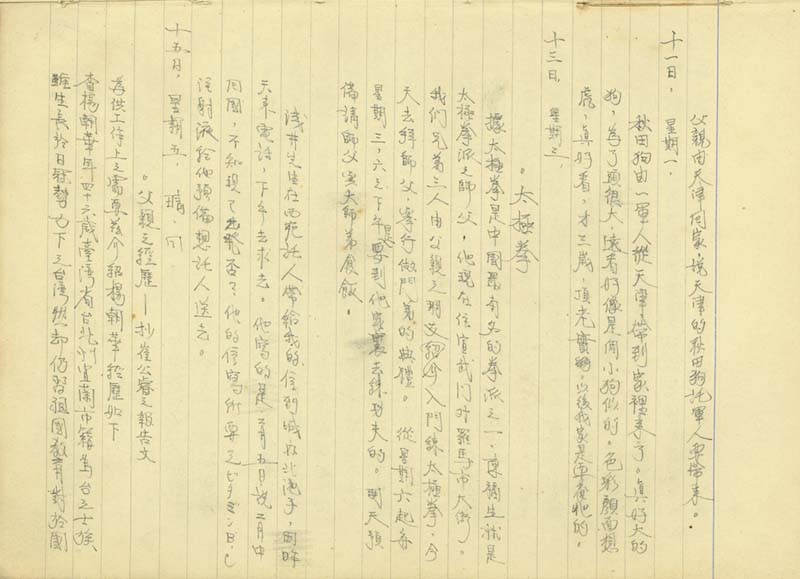 父親由天津回家,說天津的秋田狗託軍人要搭來。
十一日, 星期一,
秋田狗由一軍人從天津,帶到家裡來了。真好大的
狗,為了頭很大,遠看好像是同小狗似的。色彩顏面想
虎,真好看,才三歲,頂老實的
十三日, 星期三,
。太極拳
據太極拳是中國最有名的拳派之一,
太極拳派之師父,他現在住宣武门外羅馬市大街。
我们兄弟三人由父親之朋友紹介入門練太極拳,今
天去拜師父,舉行做門弟的典禮。 從星期六起每
星期三,六之下午是要到他家裏去練功夫的。明天預
備請師父宴大師弟食飯。
淺井先生在西苑託人帶給我的信到城內北池子,
天來電話,下午去求去。他寫的是二月五日說二月中
回國,不知現了 否?他的信寫所要之ビタミンB.C
注射液給他預備想託人送去。
十五日, 星期五, 晴
。父親之經歷—抄崔公審之報告文
為供工作上之需要茲介紹楊朝華經歷如下
查楊朝華年四十六歲臺灣省台北州宜蘭市籍為台之士族,
雖生長於日寇勢力下之台湾然却仍習祖國教育對於國